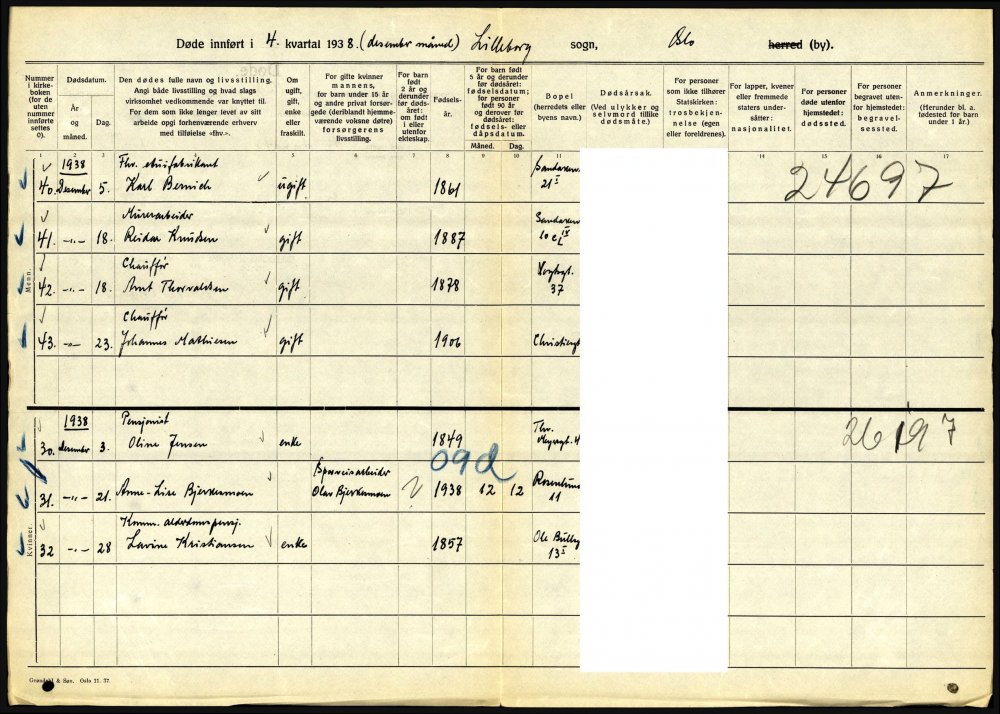 Døde innført i 4. kvartal 1938. (desember måned) Lilleborg sogn, Oslo herred (by).
Nummer i kirkeboken (for de uten nummer innførte settes 0).
Dødsdatum.
År og måned.
Dag.
Den dødes fulle navn og livsstilling.
Angi både livsstilling og hvad slags virksomhet vedkommende var knyttet til.
For dem som ikke lenger levet av sitt arbeide opgi forhenværende erhverv med tilføielse «fhv.».
Om ugift, gift, enke eller fraskilt.
For gifte kvinner mannens, for barn under 15 år og andre privat forsørgede (deriblandt hjemmeværende voksne døtre) forsørgerens livsstilling.
For barn født 2 år og derunder før dødsåret: om født i eller utenfor ekteskap.
Fødselsår.
For barn født 5 år og derunder før dødsåret: fødselsdatum; for personer født 90 år og derover før dødsåret: fødsels- eller dåpsdatum.
Måned. Dag.
Bopel (herredets eller byens navn).
Dødsårsak. (Ved ulykker og selvmord tillike dødsmåte.)
For personer som ikke tilhører Statskirken: trosbekjennelse (egen eller foreldrenes).
For lapper, kvener eller fremmede staters undersåtter: nasjonalitet.
For personer døde utenfor hjemstedet: dødssted.
For personer begravet utenfor hjemstedet: begravelsessted.
Anmerkninger. (Herunder bl. a. fødested for barn under 1 år.)
1 2 3 4 5 6 7 8 9 10 11 14 15 16 17
Menn.
1938 Fhv. etuifabrikant
40. Desember 5. Karl Bernich ugift 1861 21 I 24697
Murerarbeider
41. -"- 18. Reidar Knudsen gift 1887 10 c IV
Chauffør
42. -"- 18. Arnt Thorvaldsen gift 1878 37
Chauffør
43. -"- 23. Johannes Mathiesen gift 1906
Kvinner.
1938 Pensjonist
30. desember 3. Oline Jensen enke 1849 26197
09d
Sporveisarbeider
31. -"- 21. Anne-Lise Bjerkemoen Olav Bjerkemoen 1938 12 12 11
Komm. alderdomspensj.
32 -"- 28 Lavine Kristiansen enke 1857 Ole Bull
13 I
Grøndahl & Søn. Oslo 11. 37.